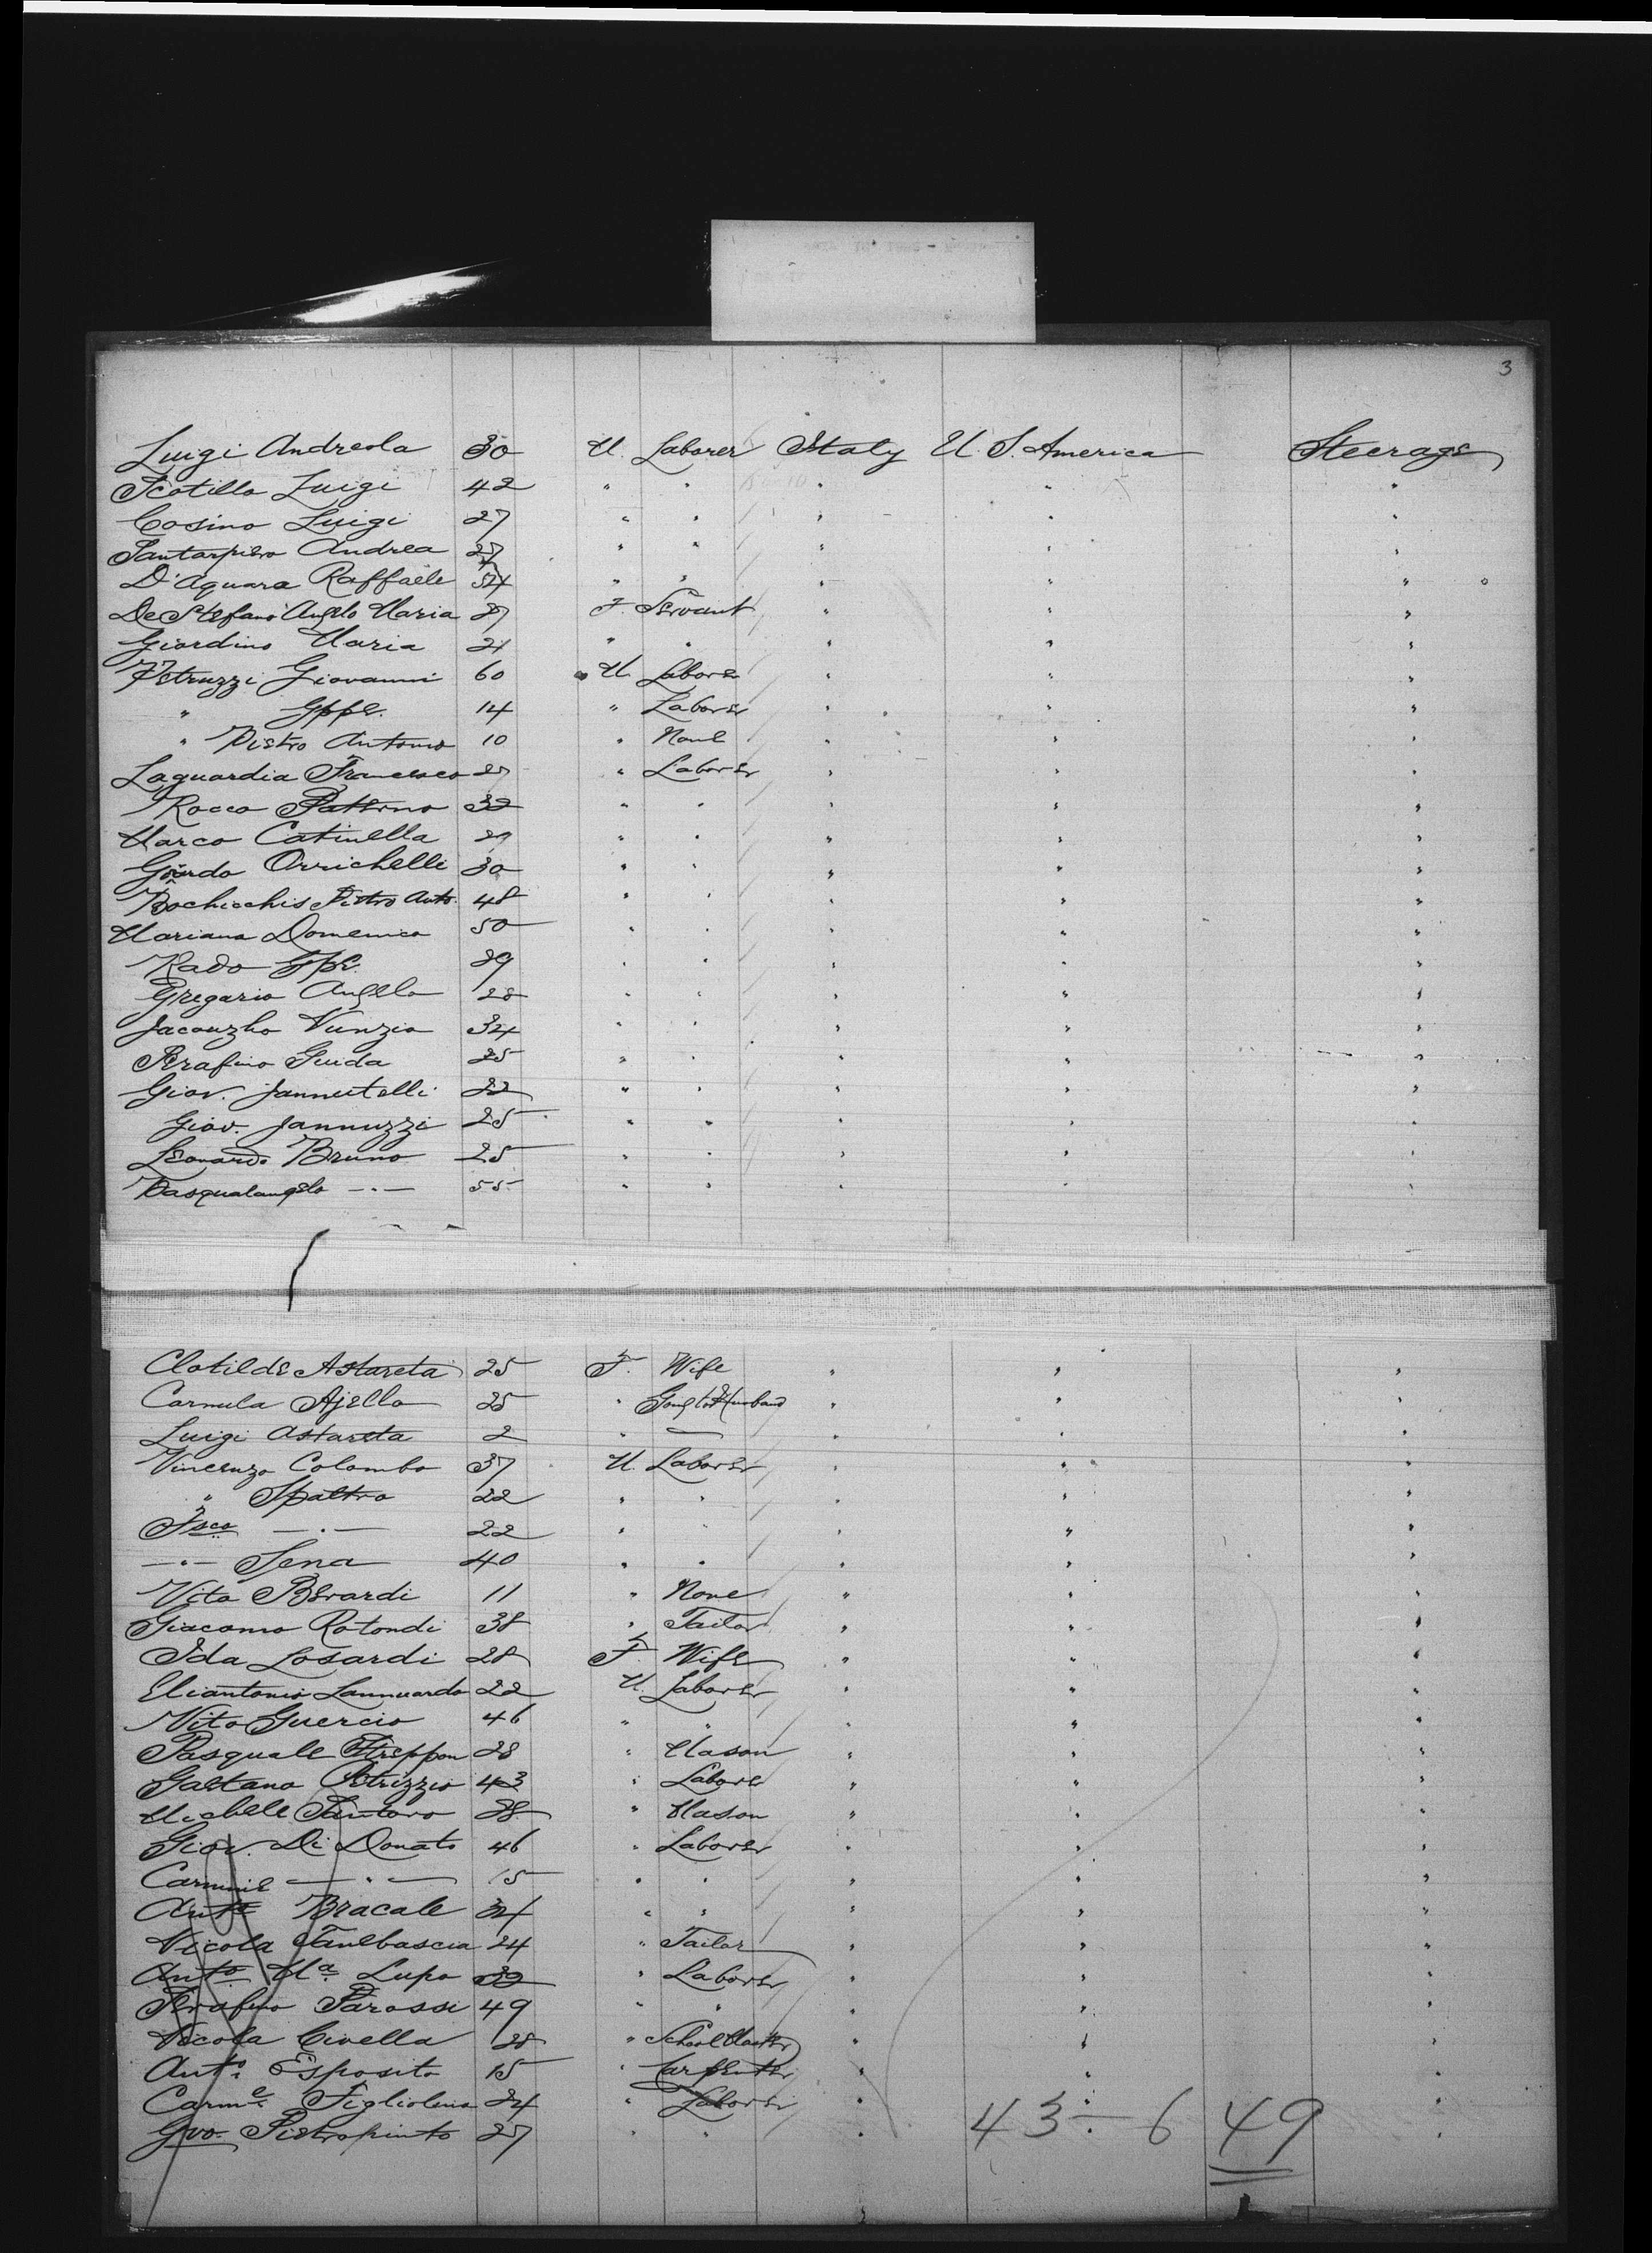 3
Luigi Andreola 30 M. Laborer Italy U. S. America Steerage
Scotillo Luigi 42 " " " " "
Cosimo Luigi 27 " " " " "
Santarpiero Andrea 27 " " " " "
D'Aquara Raffaele 54 " " " " "
De Stefano Angelo Maria 27 F. Servant " " "
Giordino Maria 21 " " " " "
Petruzzi Giovanni 60 M. Laborer " " "
" Gppe. 14 " Laborer " " "
" Pietro Antonio 10 " None " " "
Laguardia Francesco 27 " Laborer " " "
Rocco Paterno 32 " " " " "
Marco Catinella 29 " " " " "
Orrichelli 30 " " " " "
Bochicchio Pietro Anto. 48 " " " " "
Mariana Domenico 50 " " " " "
Rado Gpe. 29 " " " " "
Gregario Angelo 28 " " " " "
Nunzio 34 " " " " "
Serafino Guida 25 " " " " "
Giov. Jannutelli 22 " " " " "
Giov. Jannuzzi 25 " " " " "
Leonardo Bruno 25 " " " " "
Pasqualangelo —"— 55 " " " " "
Clotilde Astareta 25 F. Wife " " "
Carmula Ajello 25 " Going to Husband " " "
Luigi Astareta 2 " — " " "
Vincenzo Colombo 37 M. Laborer " " "
" Spaltro 22 " " " " "
Fsco —"— 22 " " " " "
—"— Sena 40 " " " " "
Vito Berardi 11 " None " " "
Giacomo Rotondi 38 " Tailor " " "
Ida Losardi 28 F. Wife " " "
Eliantonio Lannuardo 22 M. Laborer " " "
Vito Guercio 46 " " " " "
Pasquale Streppon 28 " Mason " " "
Gaetano Petrizzio 43 " Laborer " " "
Michele Santoro 38 " Mason " " "
Giov. Di Donato 46 " Laborer " " "
Carmine —"— 15 " " " " "
Anto Bracale 34 " " " " "
Nicola Tanebascia 24 " Tailor " " "
Anto. Ma. Lupo 32 " Laborer " " "
Serafino Parossi 49 " " " " "
Nicola Civella 28 " School Master " " "
Anto. Esposito 15 " Carpenter " " "
Carme. Figliolino 24 " Laborer " " "
Gvo. Pietrapinto 27 " " " " "
43 - 6 49